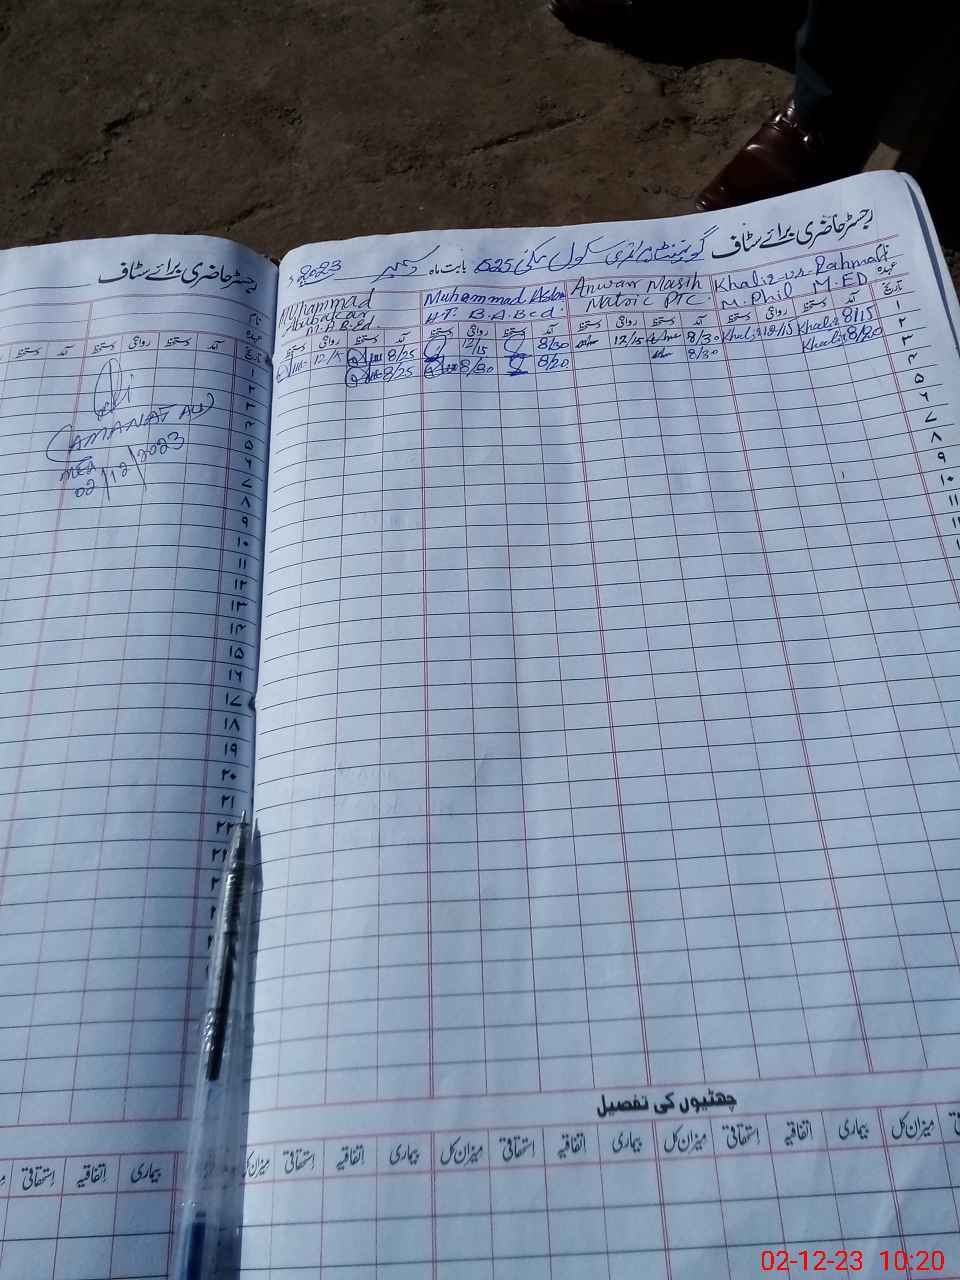 رجسٹر حاضری برائے سٹاف
گورنمنٹ پرائمری سکول بابت ماہ دسمبر 2023ء
Khaliz-ur-Rahman
M.Phil M.ED
Anwar Masih
Matric PTC.
Muhammad Aslam
HT. B.A.Bed.
Muhammad
Abubakar
M.A.B.Ed.
نام
عہدہ
تاریخ آمد دستخط روانگی دستخط آمد دستخط روانگی دستخط آمد دستخط روانگی دستخط آمد دستخط روانگی دستخط
۱ 8/15 Khaliz 12/15 Khaliz 8/30 12/15 8/30 12/15 8/25
۲ 8/20 Khaliz 8/30 8/20 8/30 8/25
۳
۴
۵
۶
۷
۸
۹
۱۰
۱۱
چھٹیوں کی تفصیل
میزان کل بیماری اتفاقیہ استحقاقی میزان کل بیماری اتفاقیہ استحقاقی میزان کل بیماری اتفاقیہ استحقاقی
رجسٹر حاضری برائے سٹاف
نام
عہدہ
تاریخ آمد دستخط روانگی دستخط آمد دستخط
۱
۲
۳
۴
۵
۶
۷
۸
۹
۱۰
۱۱
۱۲
۱۳
۱۴
۱۵
۱۶
۱۷
۱۸
۱۹
۲۰
۲۱
۲۲
(AMANAT ALI)
MEA
02/12/2023
بیماری اتفاقیہ استحقاقی
02-12-23 10:20